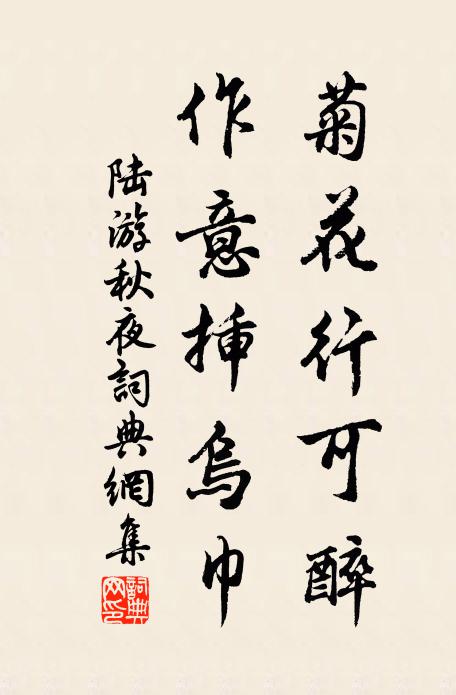 菊花行可醉
作意插烏巾
陆游秋夜詞典網集
詞典網印